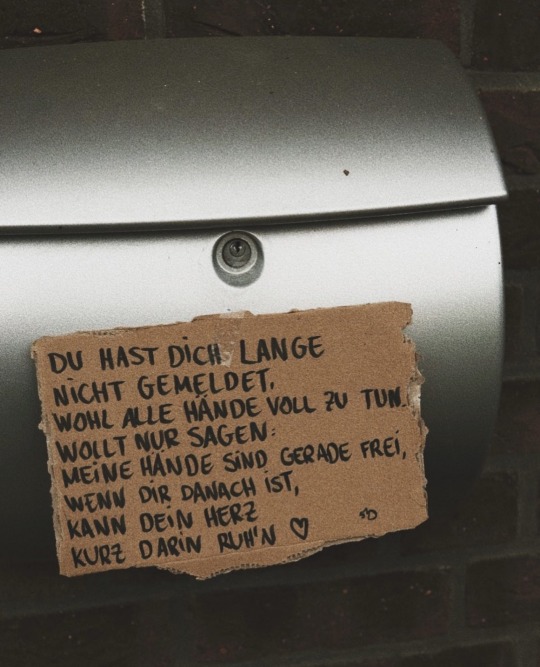 DU HAST DICH LANGE
NICHT GEMELDET,
WOHL ALLE HÄNDE VOLL ZU TUN.
WOLLT NUR SAGEN:
MEINE HÄNDE SIND GERADE FREI,
WENN DIR DANACH IST,
KANN DEIN HERZ
KURZ DARIN RUH'N ♡